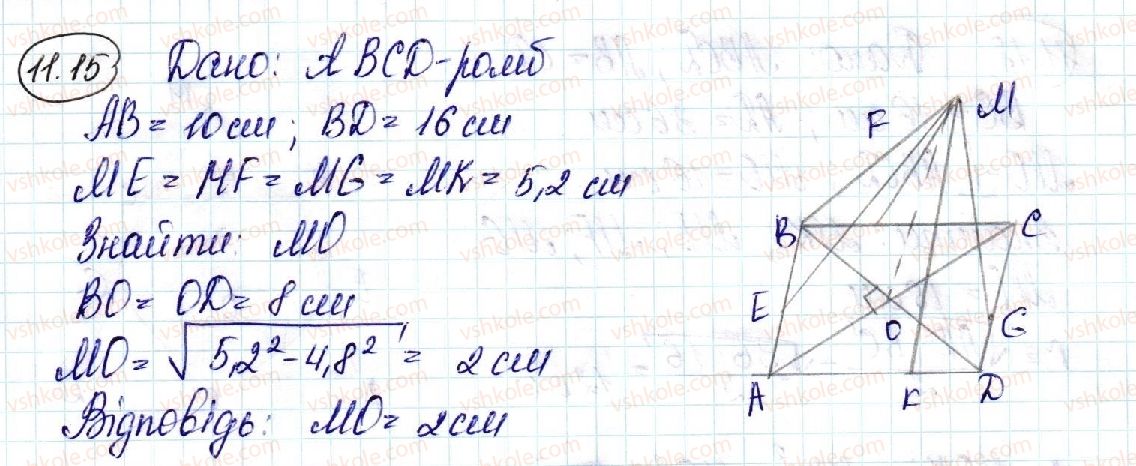 11.15 Дано: ABCD-ромб
AB = 10 см; BD = 16 см
ME = MF = MG = MK = 5,2 см
Знайти: MO
BO = OD = 8 см
MO = √5,2² - 4,8² = 2 см
Відповідь: MO = 2 см
M
F
B
C
E
O
G
A
K
D